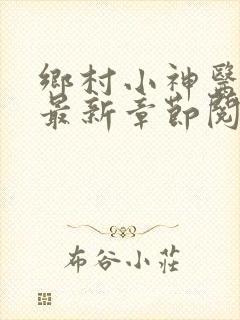 鄉村小神醫
最新章節閱
布谷小莊